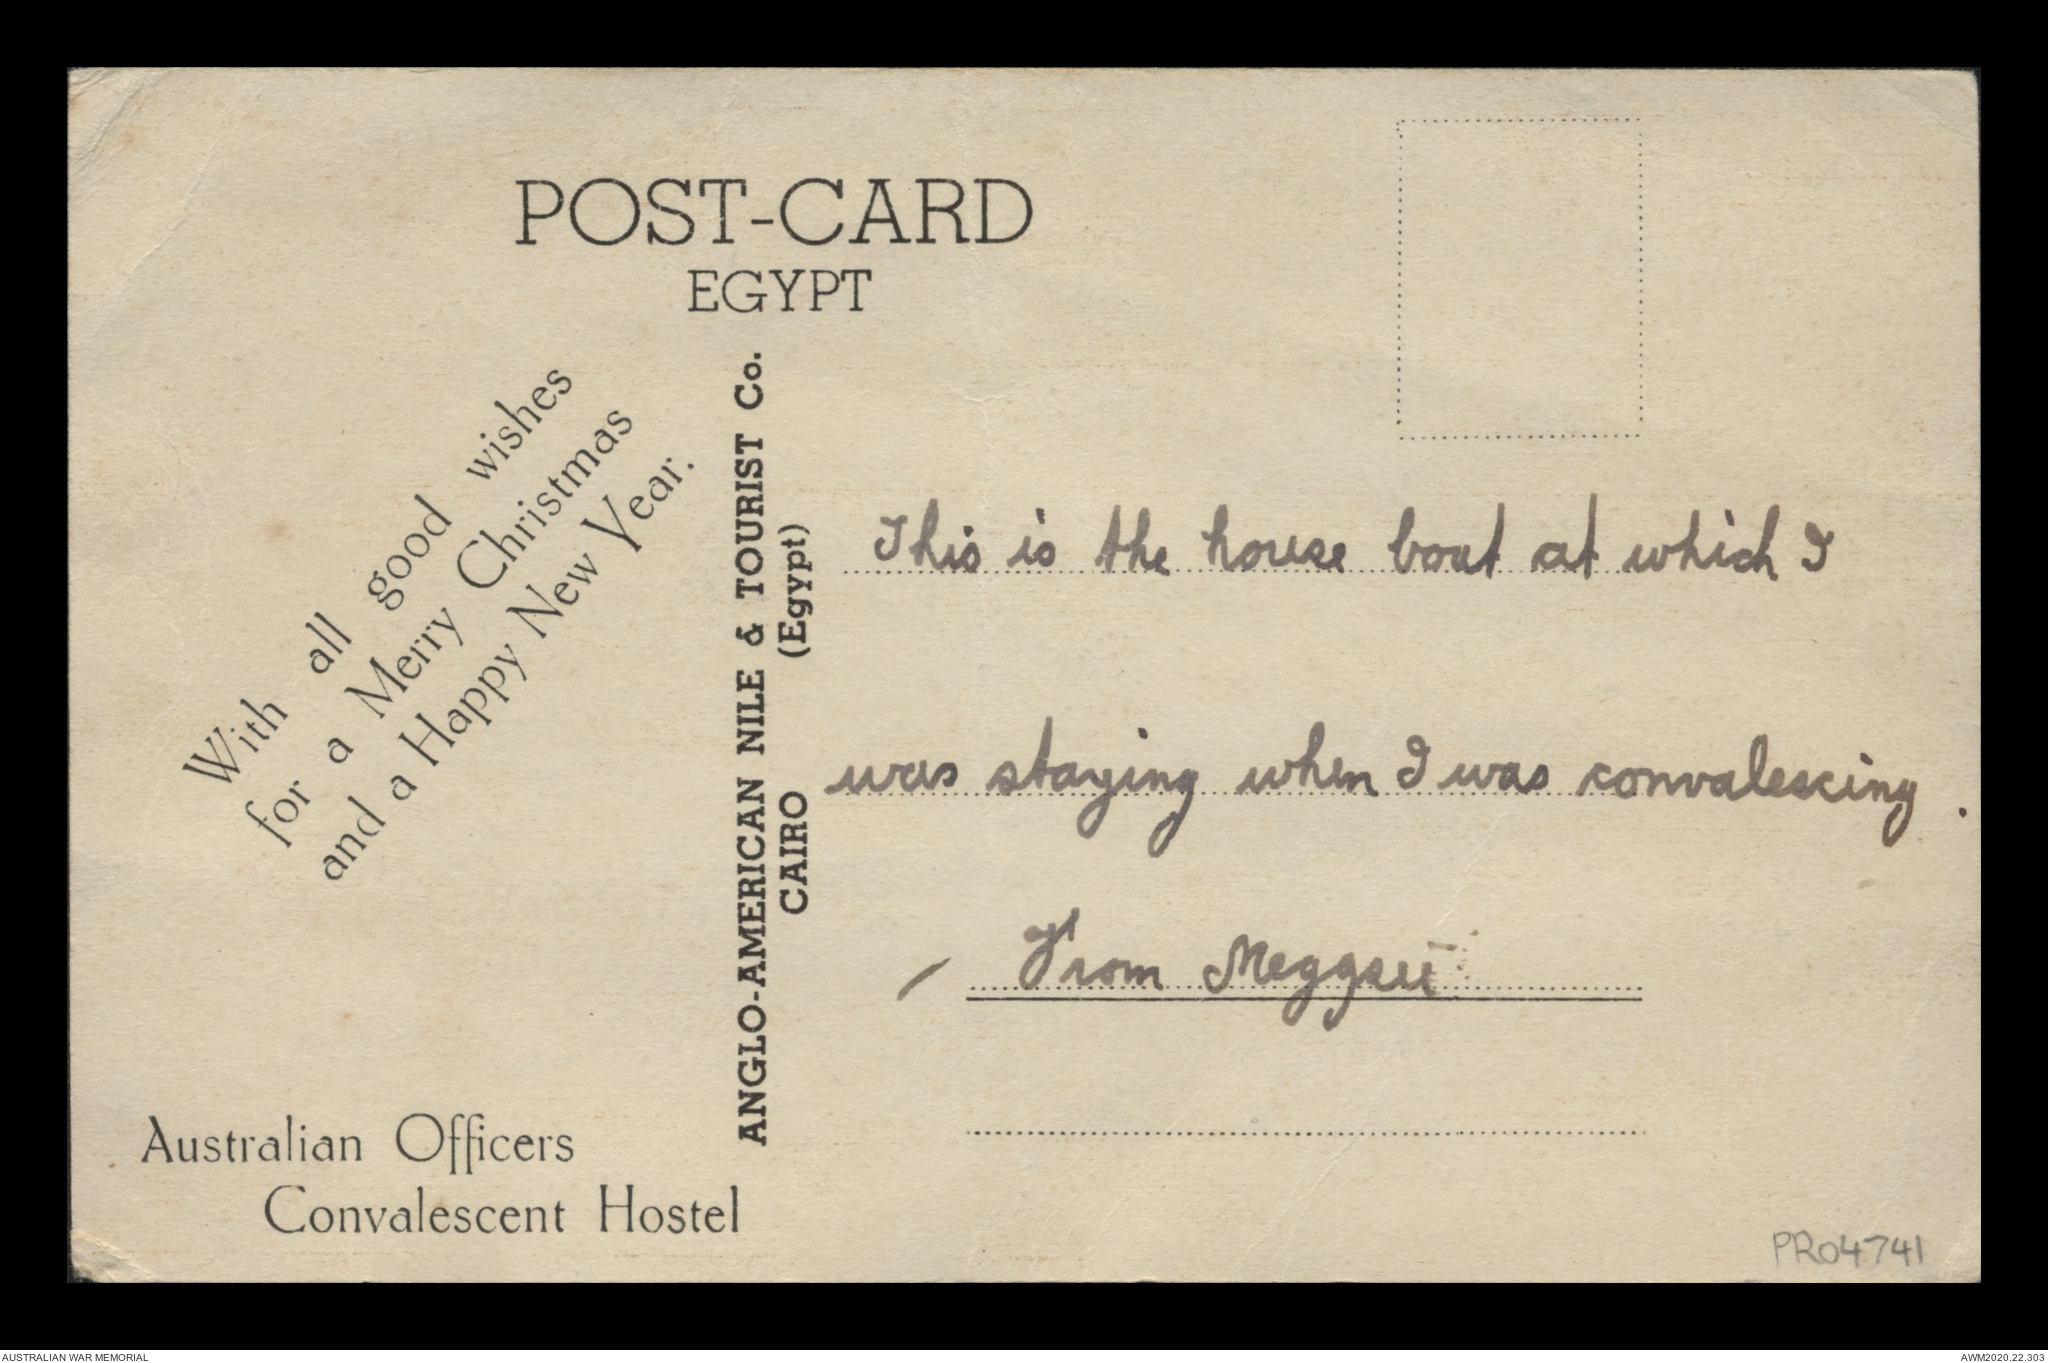 POST-CARD
EGYPT
With all good wishes
for a Merry Christmas
and a Happy New Year.
Australian Officers
Convalescent Hostel
ANGLO-AMERICAN NILE & TOURIST Co.
CAIRO (Egypt)
This is the house boat at which I
was staying when I was convalescing.
From
PR04741
AUSTRALIAN WAR MEMORIAL
AWM2020.22.303